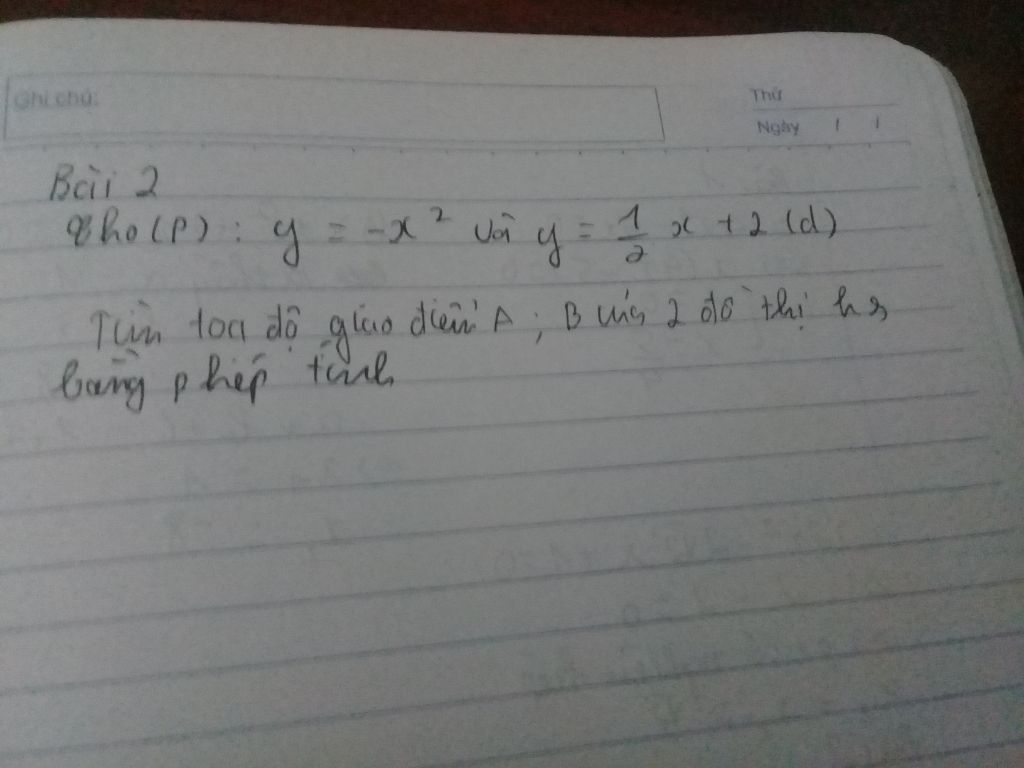 Ghi chú:
Thứ
Ngày / /
Bài 2
Cho (P) : y = -x² và y = 1/2 x + 2 (d)
Tìm toạ độ giao điểm A ; B của 2 đồ thị hs
bằng phép tính